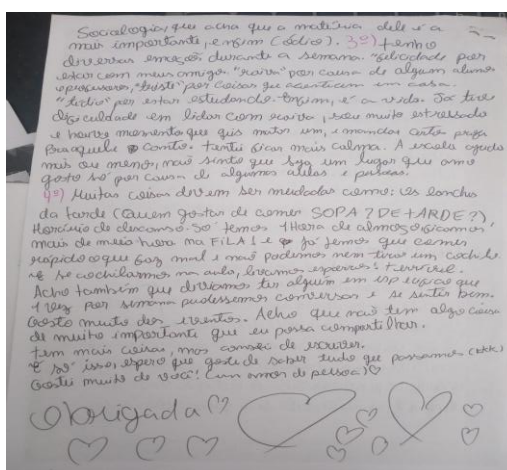 Sociologia, que acha que a matéria dele é a
mais importante, enfim (ódio). 3º) tenho
diversas emoções durante a semana. "felicidade por
estar com meus amigos "raiva" por causa de alguns alunos
e professores, "triste" por coisas que acontecem em casa.
"tédio" por estar estudando. Enfim, é a vida. Já tive
dificuldade em lidar com raiva, sou muito estressada
e houve momentos que quis matar um, e mandar outro praga
pra aquele canto. tentei ficar mais calma. A escola ajuda
mais ou menos, mas sinto que seja um lugar que amo
gosto só por causa de algumas aulas e pessoas.
4º) Muitas coisas devem ser mudadas como: os lanches
da tarde (Quem gosta de comer SOPA? DE TARDE?),
Horário de descanso. Só temos 1 Hora de almoço, ficamos
mais de meia hora na FILA! e já temos que comer
rápido o que faz mal e não podemos nem tirar um cochilo
e se cochilarmos na aula, levamos esporro! terrível.
Acho também que deviamos ter alguém em que
1 vez por semana pudessemos conversar e se sentir bem.
Gosto muito dos eventos. Acho que não tem algo
de muito importante que eu possa compartilhar.
tem mais coisas, mas cansei de escrever.
É só isso, espero que goste de saber tudo que passamos (kkk)
Gostei muito de você! (um amor de pessoa)
Obrigada